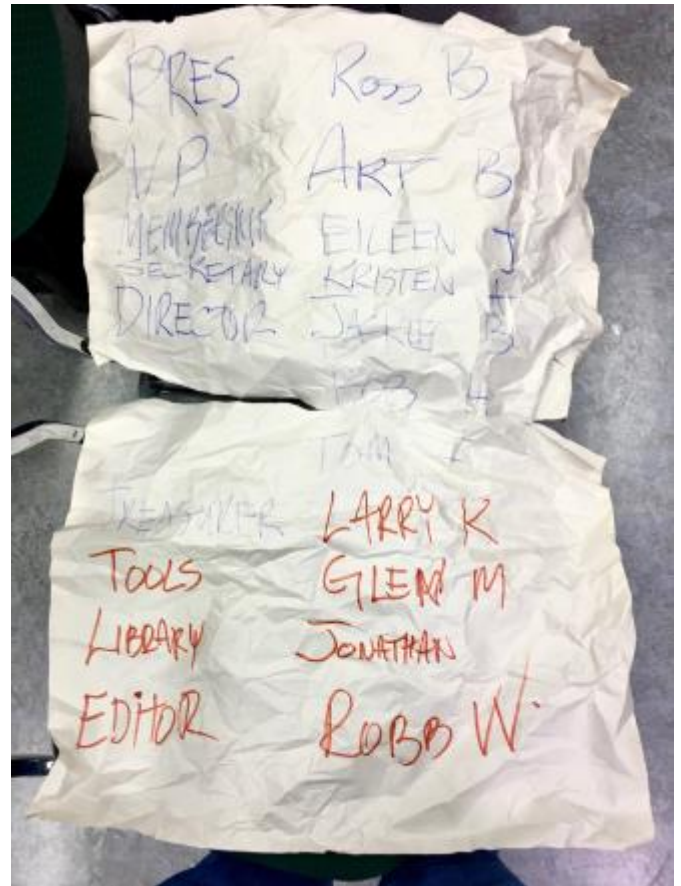 PRES Ross B
VP ART B
MEMBERSHIP EILEEN J
SECRETARY KRISTEN
DIRECTOR JACKIE B
TREASURER LARRY K
TOOLS GLEN M
LIBRARY JONATHAN
EDITOR ROBB W.